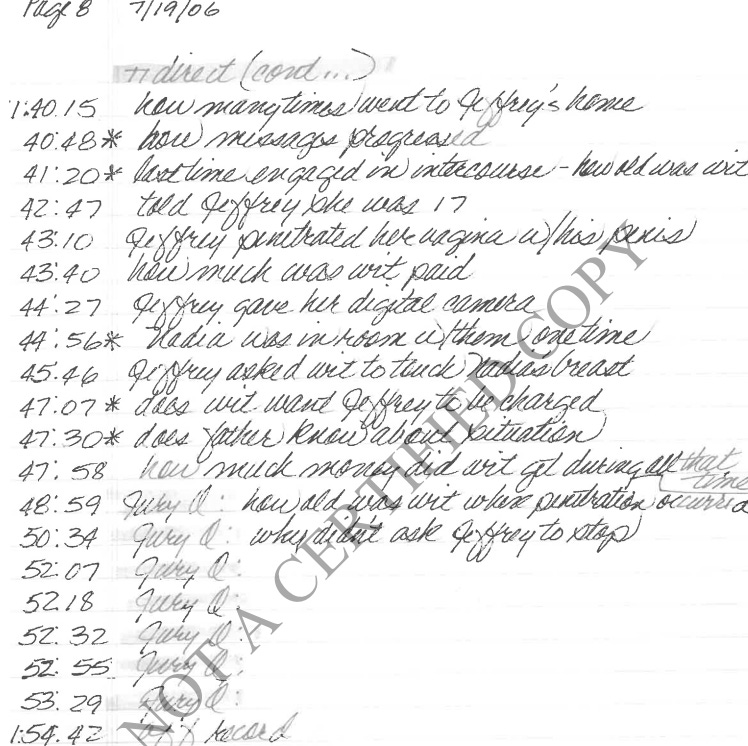 Page 8 7/19/06
direct (cont...)
1:40.15 how many times went to Jeffrey's home
40:48* how messages progressed
41:20* last time engaged in intercourse - how old was wit
42:47 told Jeffrey she was 17
43:10 Jeffrey penitrated her vagina w/his penis
43:40 how much was wit paid
44:27 Jeffrey gave her digital camera
44:56* Nadia was in room w/them one time
45:46 Jeffrey asked wit to touch Nadias breast
47:07* does wit want Jeffrey to be charged
47:30* does father know about situation
47:58 how much money did wit get during all that time
48:59 Jury Q: how old was wit when penitration occurred
50:34 Jury Q: why didn't ask Jeffrey to stop
52:07 Jury Q:
52:18 Jury Q:
52:32 Jury Q:
52:55 Jury Q:
53:29 Jury Q:
1:54:42 off record
NOT A CERTIFIED COPY